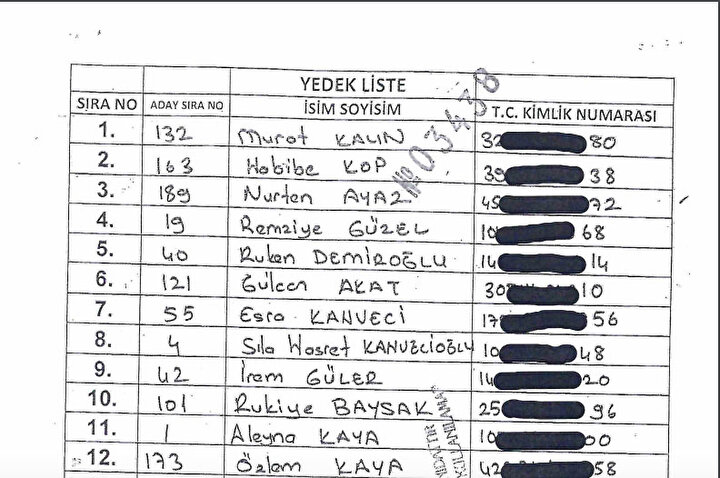 YEDEK LİSTE
SIRA NO ADAY SIRA NO İSİM SOYİSİM T.C. KİMLİK NUMARASI
1. 132 Murat KALIN 32 80
2. 163 Habibe KOP 39 38
3. 189 Nurten AYAZ 45 72
4. 19 Remziye GÜZEL 10 68
5. 40 Ruken DEMİROĞLU 14 14
6. 121 Gülcan AKAT 30 10
7. 55 Esra KAHVECİ 17 56
8. 4 Sıla Hasret KAHVECİOĞLU 10 48
9. 42 İrem GÜLER 14 20
10. 101 Rukiye BAYSAK 25 96
11. 1 Aleyna KAYA 10 00
12. 173 Özlem KAYA 42 58
№ 03438